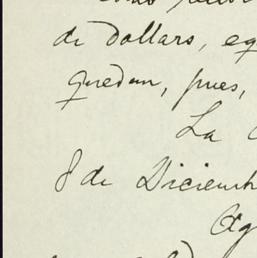 de dollars, eq
quedan, pues,
La
8 de Diciemb
Ag